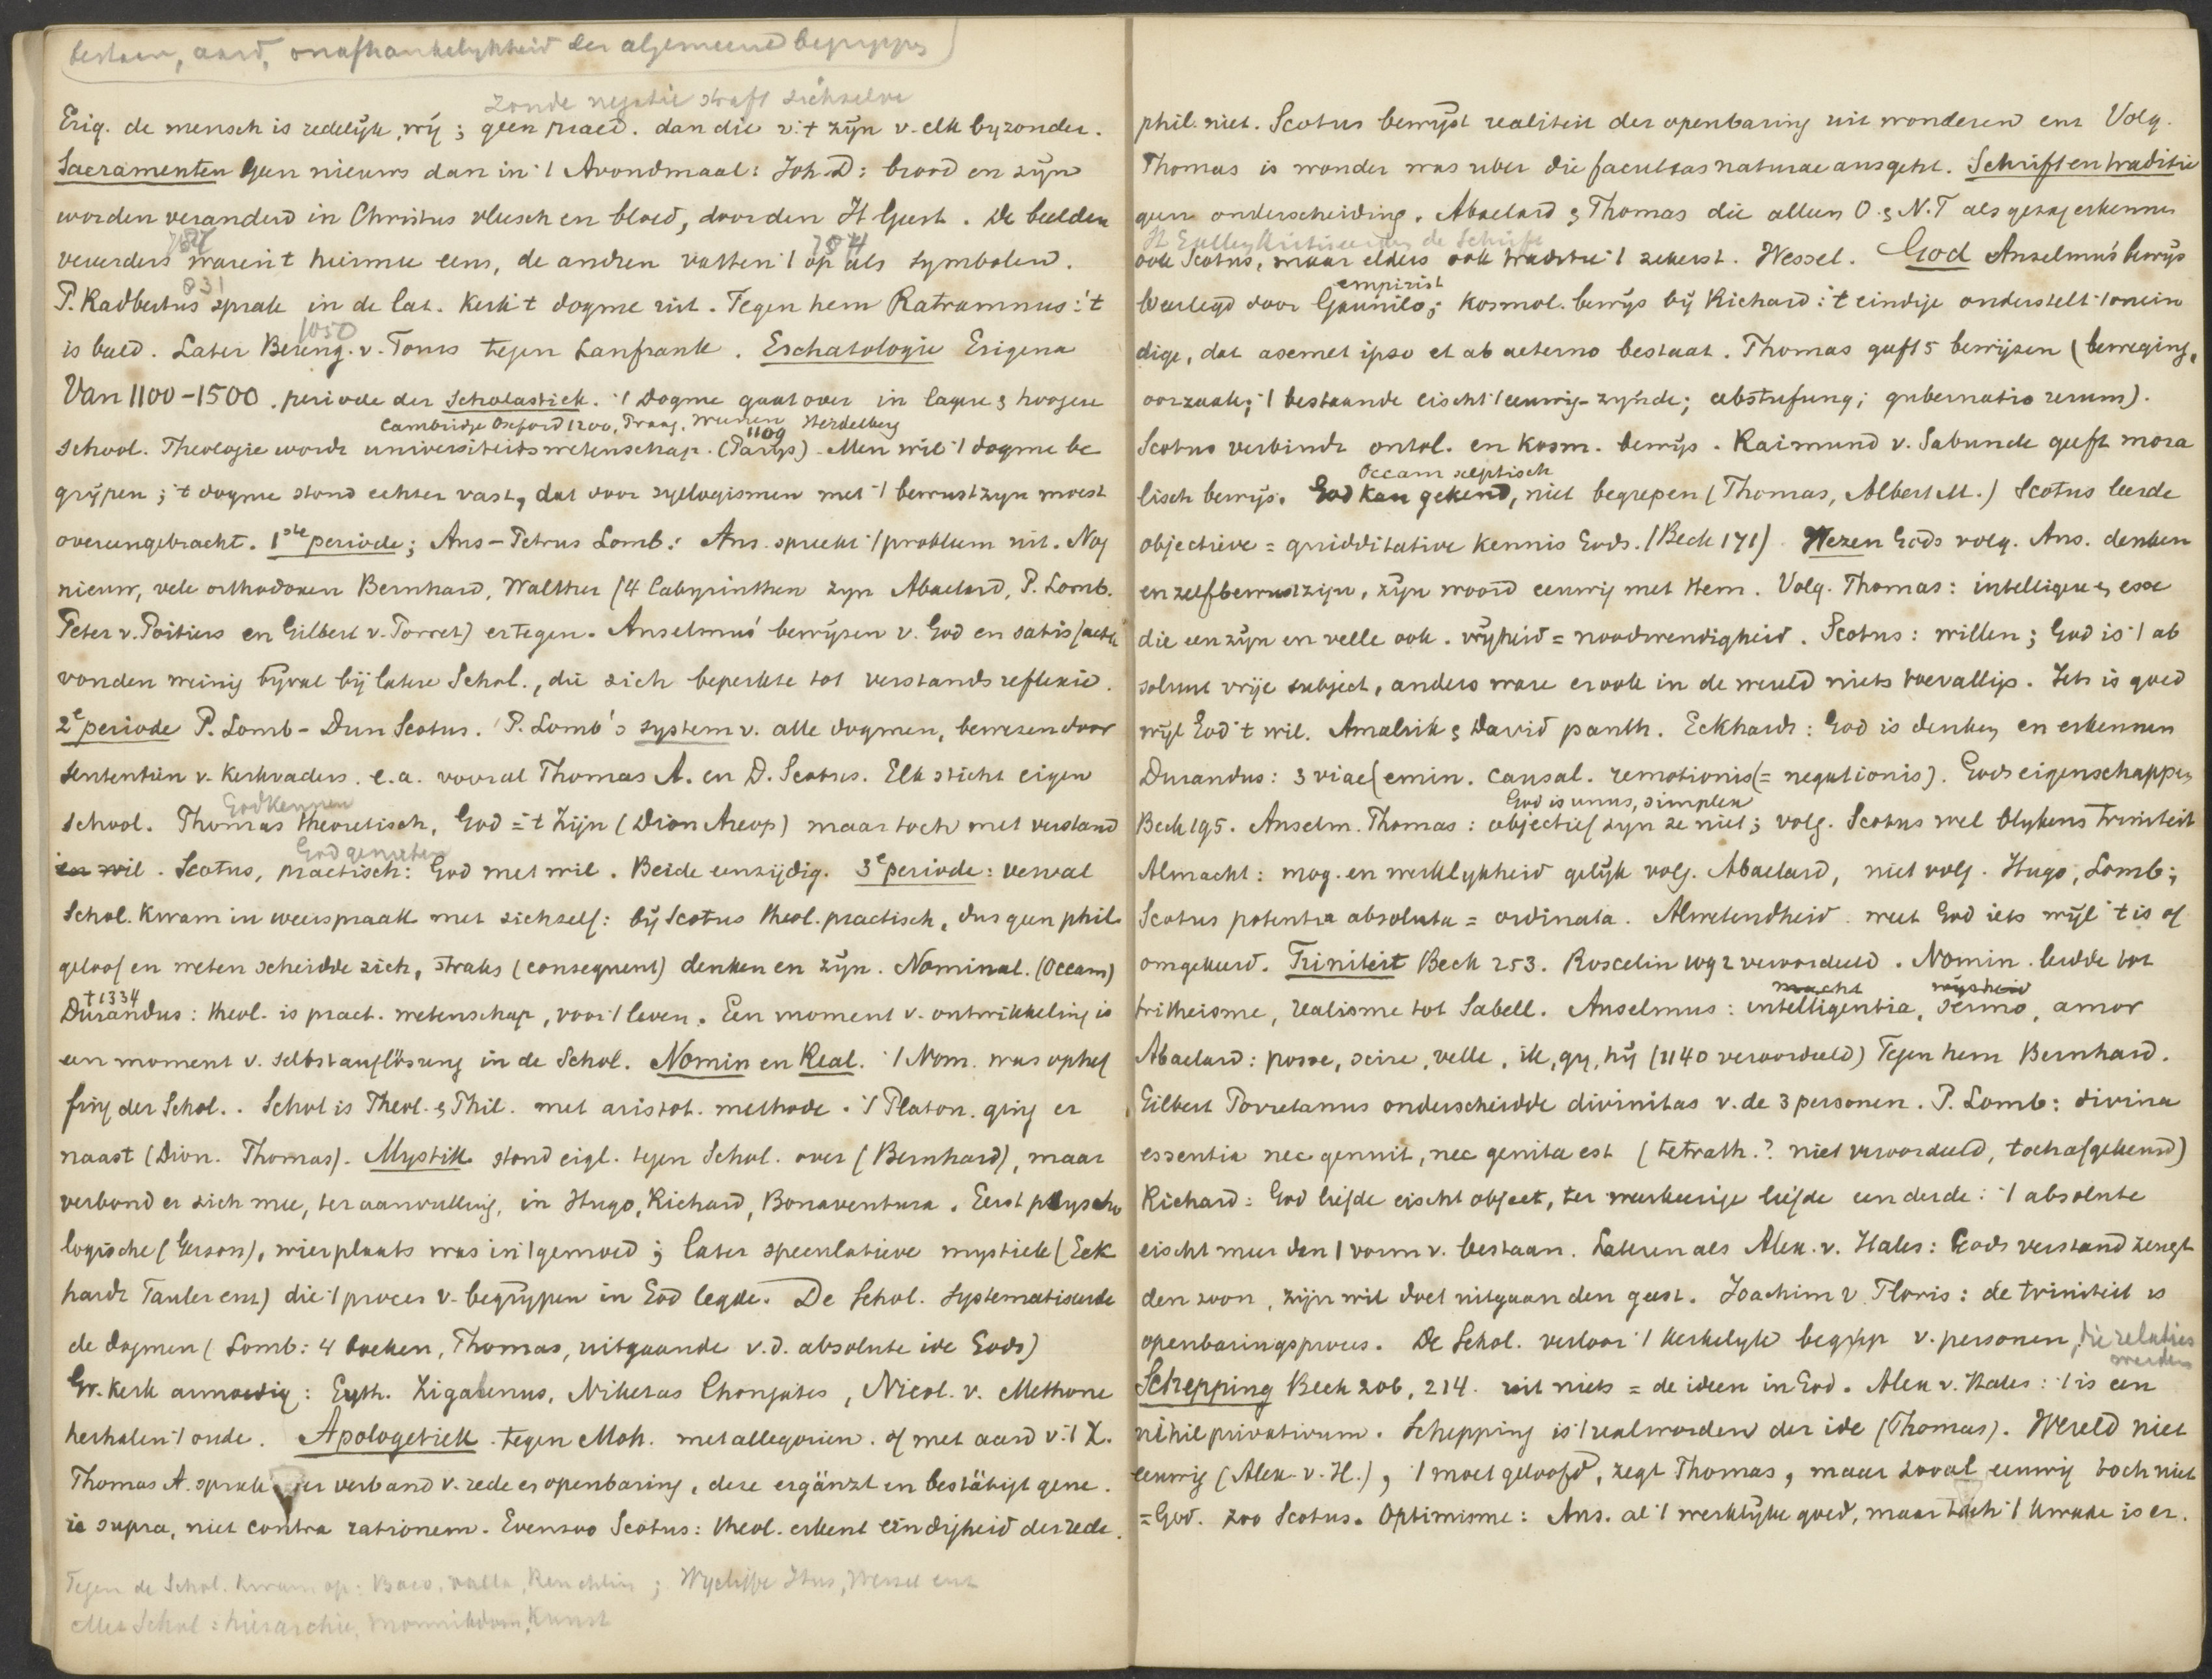 bestaan, aard, onafhankelykheid der algemeene begrippen
zonde negatie straft zichzelve
Erig. de mensch is redelijk, vrij; geen praed. dan die v. 't zijn v. elk byzonder.
Sacramenten Geen nieuws dan in 't Avondmaal: Joh. D: brood en wijn
worden veranderd in Christus vleesch en bloed, door den H Geest. De beelden
787 754
vereerders waren 't hiermee eens, de andren vatten 't op als symbolen.
831
P. Radbertus sprak in de lat. Kerk 't dogme uit. Tegen hem Ratramnus: 't
1050
is beeld. Later Bereng. v. Tours tegen Lanfrank. Eschatologie Erigena
Van 1100-1500. periode der Scholastiek. 't Dogme gaat over in lagere & hoogere
Cambridge Oxford 1200, Praag, Weenen Heidelberg
1109
school. Theologie wordt universiteitswetenschap. (Parijs). Men wil 't dogme be
grijpen; 't dogme stond echter vast, dat door syllogismen met 't bewustzijn moest
overeengebracht. 1ste periode; Ans-Petrus Lomb: Ans. spreekt 't probleem uit. Nog
nieuw, vele orthodoxen Bernhard, Walther (4 Labyrinthen zyn Abaelard, P. Lomb.
Peter v. Poitiers en Gilbert v. Porret) ertegen. Anselmus' bewijzen v. God en satisfactie
vonden weinig bijval bij latere Schol., die zich beperkte tot verstandsreflexie.
2e periode P. Lomb - Dun Scotus. P. Lomb's system v. alle dogmen, bewezen door
sententiën v. Kerkvaders. e.a. vooral Thomas A. en D. Scotus. Elk sticht eigen
God kennen
school. Thomas theoretisch, God = 't Zijn (Dion Areop) maar toch met verstand
God genieten
en wil. Scotus, practisch: God met wil. Beide eenzijdig. 3e periode: verval
Schol. Kwam in weerspraak met zichzelf: bij Scotus theol. practisch, dus geen phil.
geloof en weten scheidde zich, straks (consequent) denken en zijn. Nominal. (Occam)
†1334
Durandus: theol. is pract. wetenschap, voor 't leven. Een moment v. ontwikkeling is
een moment v. selbstauflösung in de Schol. Nomin en Real. 't Nom. was ophef
fing der Schol.. Schol is Theol. & Phil. met aristot. methode. 't Platon. ging er
naast (Dion. Thomas). Mystik stond eigl. tegen Schol. over (Bernhard), maar
verbond er zich mee, ter aanvulling, in Hugo, Richard, Bonaventura. Eerst psycho
logische (Gerson), wier plaats was in 't gemoed; later speculatieve mystiek (Eck
hardt Tauler enz) die 't proces v. begrijpen in God legde. De Schol. systematiseerde
de dogmen (Lomb: 4 boeken, Thomas, uitgaande v.d. absolute idee Gods)
Gr. Kerk armoedig: Euth. Zigabenus, Niketas Chonjates, Nicol. v. Methone
herhalen 't oude. Apologetiek. tegen Moh. met allegorien. of met aard v. 't X.
Thomas A. sprak over verband v. rede en openbaring, deze ergänzt en bestätigt gene.
is supra, niet contra rationem. Evenzoo Scotus: theol. erkent eindigheid der rede.
Tegen de Schol. kwam op: Baco, Valla, Reuchlin; Wycliffe Hus, Wessel enz
Met Schol: hierarchie, monnikdom, Kunst
phil. niet. Scotus bewijst realiteit der openbaring uit wonderen enz Volg.
Thomas is wonder was uber die facultas naturae ausgeht. Schrift en traditie
geen onderscheiding. Abaelard & Thomas die alleen O. & N.T als gezag erkennen
ook Scotus, maar elders ook traditie 't zekerst. Wessel. God Anselmus' bewijs
empirist
weerlegd door Gaunilo; Kosmol. bewijs bij Richard: 't eindige onderstelt 't onein
dige, dat a semet ipso et ab aeterno bestaat. Thomas geeft 5 bewijzen (beweging,
oorzaak; 't bestaande eischt 't eeuwig-zijnde; abstufung; gubernatio rerum).
Scotus verbindt ontol. en kosm. bewijs. Raimund v. Sabunde geeft mora
Occam skeptisch
lisch bewijs. God kan gekend, niet begrepen (Thomas, Albert M.) Scotus leerde
objectieve = quidditative kennis Gods. (Beck 171). Wezen Gods volg. Ans. denken
en zelfbewustzijn, zijn woord eeuwig met Hem. Volg. Thomas: intelligere & esse
die een zijn en velle ook. vrijheid = noodwendigheid. Scotus: willen; God is 't ab
solute vrije subject, anders ware er ook in de wereld niets toevallig. Iets is goed
wijl God 't wil. Amalrik & David panth. Eckhardt: God is denken en erkennen
Durandus: 3 viae (emin. causal. remotionis (= negationis). Gods eigenschappen
God is unus, simplex
Beck 195. Anselm. Thomas: objectief zijn ze niet; volg. Scotus wel blijkens triniteit
Almacht: mog. en werklykheid gelijk volg. Abaelard, niet volg. Hugo, Lomb;
Scotus potentia absoluta = ordinata. Alwetendheid. weet God iets wijl 't is of
omgekeerd. Triniteit Beck 253. Roscelin 1092 veroordeeld. Nomin. leidde tot
macht wijsheid
tritheisme, realisme tot Sabell. Anselmus: intelligentia, sermo, amor
Abaelard: posse, scire, velle, ik, gy, hij (1140 veroordeeld) Tegen hem Bernhard.
Gilbert Porretanus onderscheidde divinitas v. de 3 personen. P. Lomb: divina
essentia nec genuit, nec genita est (tetrath.? niet veroordeeld, toch afgekeurd)
Richard: God liefde eischt object, ter weerkeerige liefde een derde: 't absolute
eischt meer dan 1 vorm v. bestaan. Lateren als Alex. v. Hales: Gods verstand zeugt
den zoon, zijn wil doet uitgaan den geest. Joachim v. Floris: de triniteit is
openbaringsproces. De Schol. verloor 't kerkelyk begrip v. personen, die relaties
werden
Schepping Beck 206, 214. uit niets = de ideen in God. Alex v. Hales: 't is een
nihil privativum. Schepping is 't realworden der idee (Thomas). Wereld niet
eeuwig (Alex. v. H.), 't moet geloofd, zegt Thomas, maar zooal eeuwig toch niet
= God. zoo Scotus. Optimisme: Ans. al 't werklijke goed, maar toch 't kwade is er.